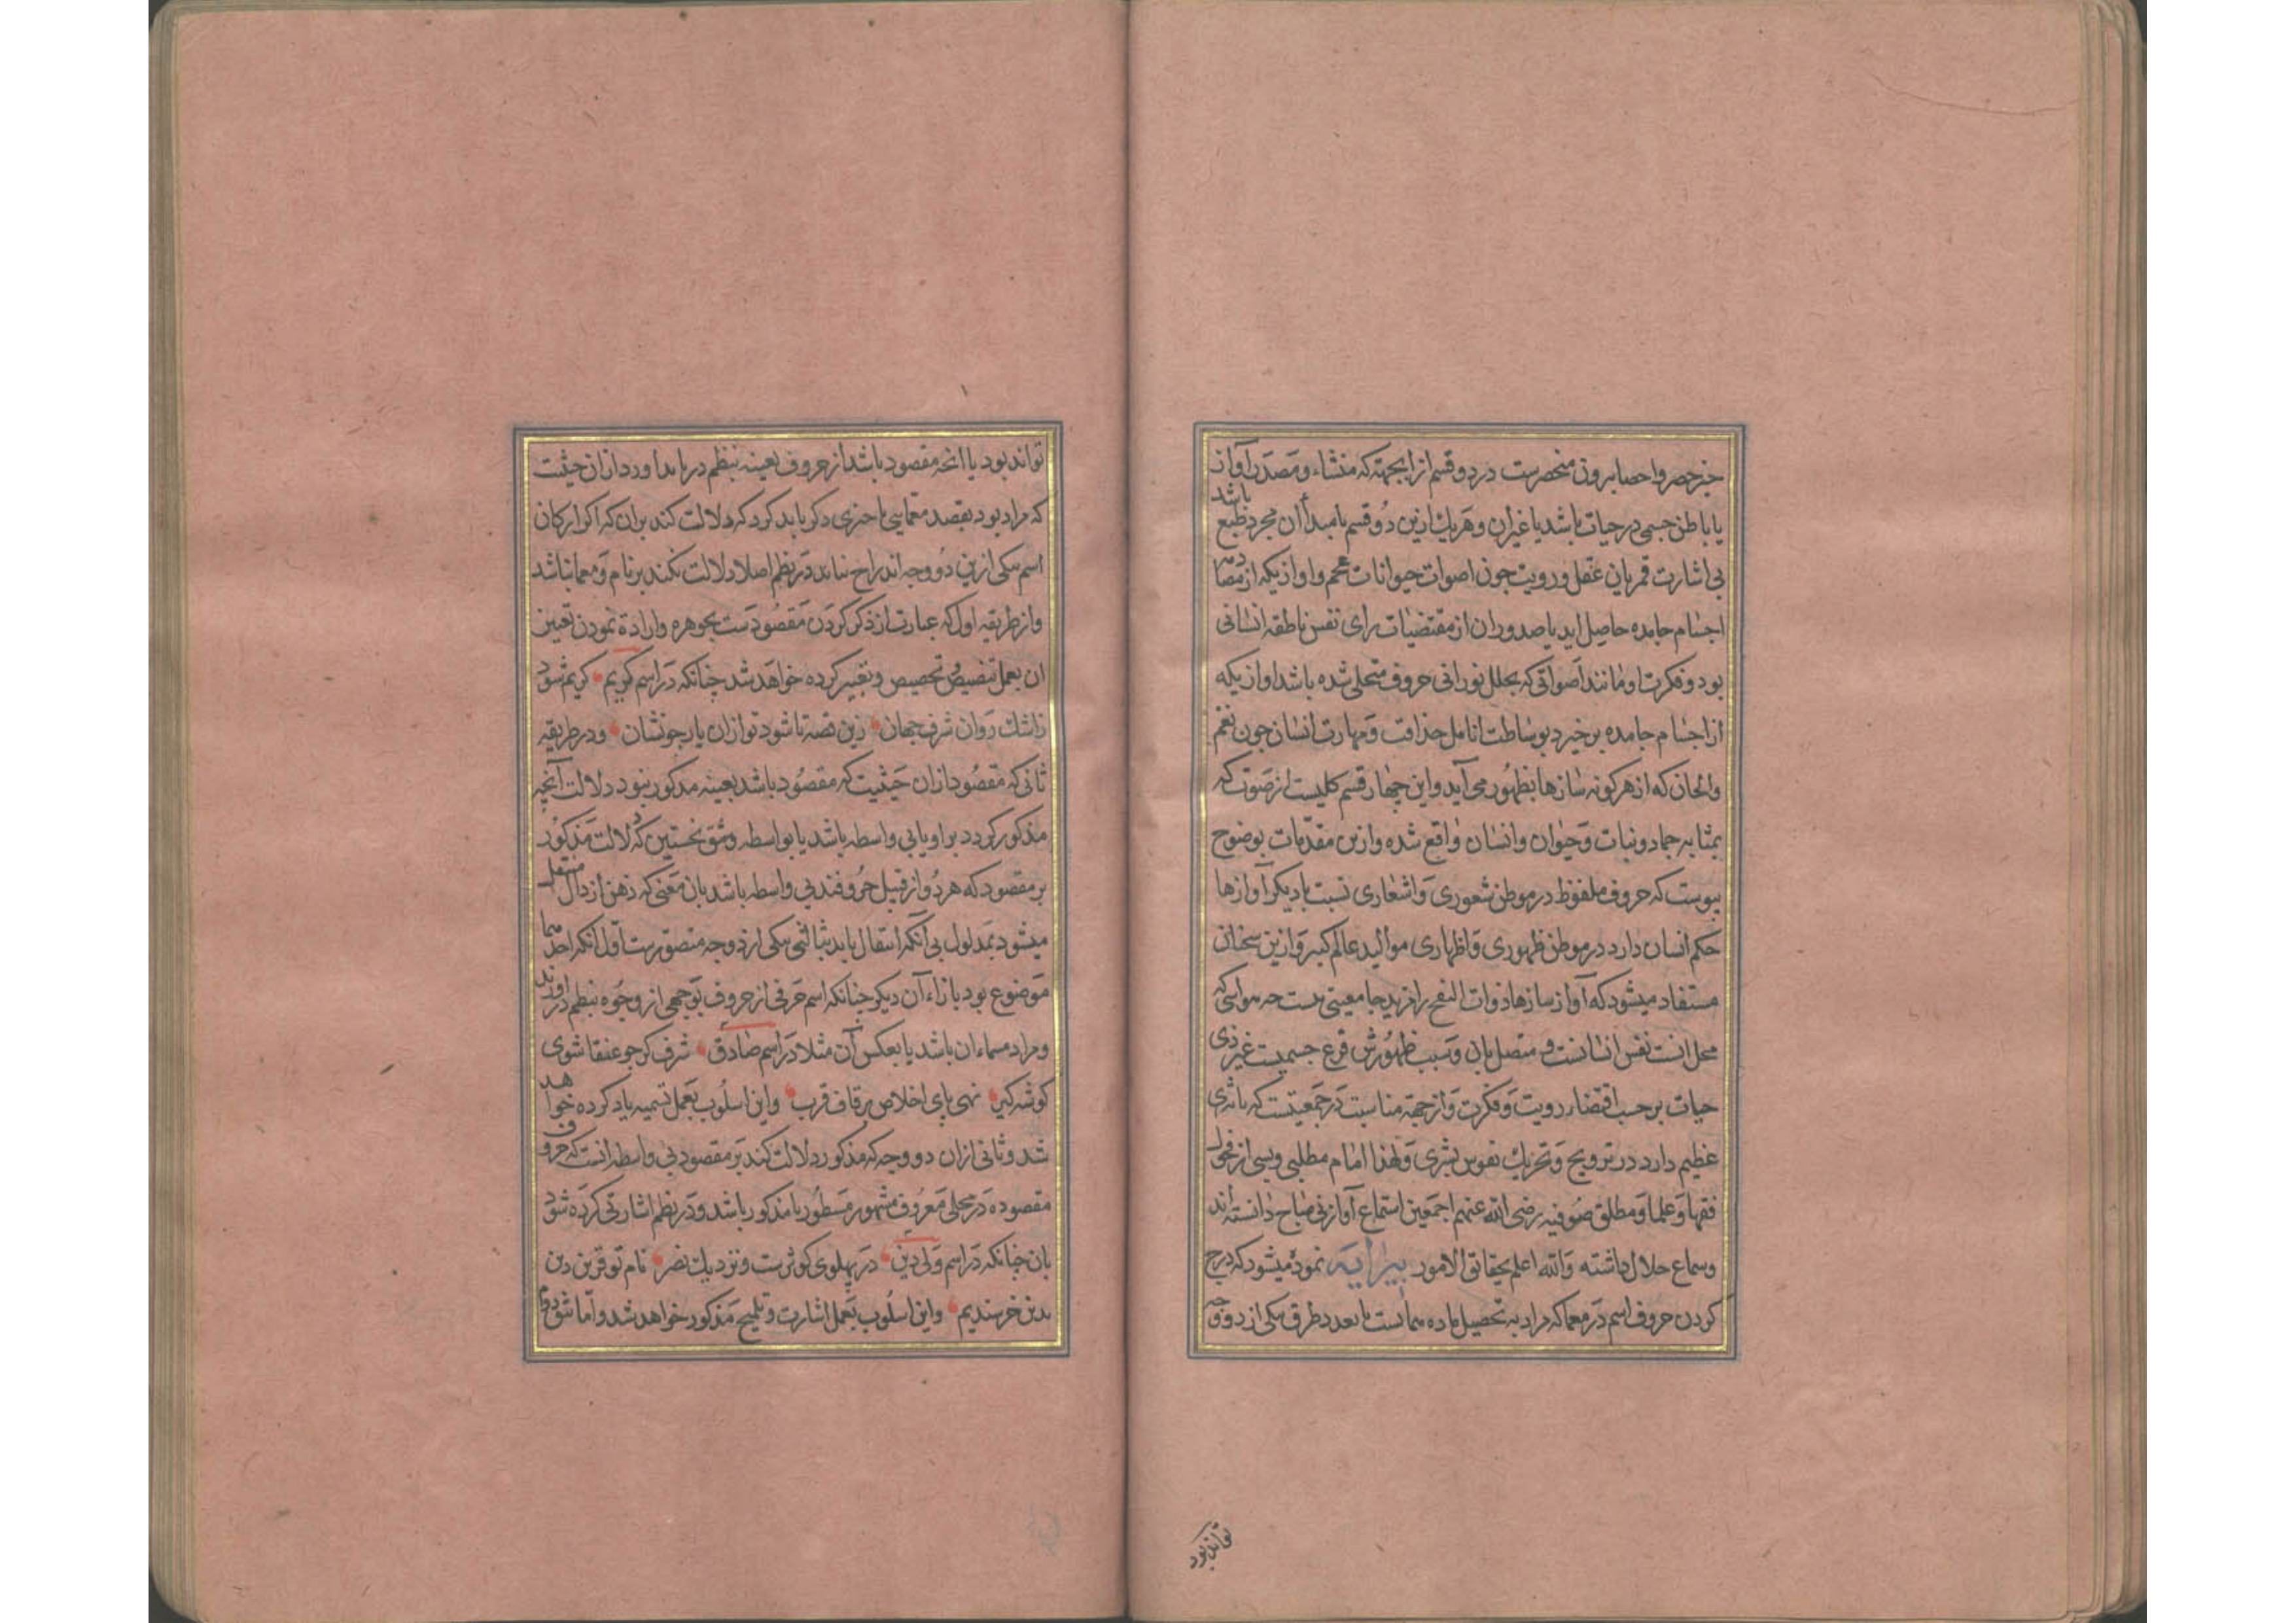 خبر حصر و احصا برون منحصرست در دو قسم از ابجهته که منشاء و مصدر آواز
یا باطن جسمی در حیات باشد یا غیر آن و هریك ازین دو قسم یا مبدأ آن مجرد طبع باشد
بی اشارت قهرمان عقل و رویت چون اصوات حیوانات عجم و اوازیکه از
اجسام جامده حاصل اید یا صدور ان از مقتضیات رای نفس ناطقه انسانی
بود و فکرت او مانند اصواتی که بحلل نورانی حروف متحلی شده باشد اوازیکه
از اجسام جامده برخیزد بوساطت انامل حذاقت و مهارت انسان چون نغم
و الحان که از هر کونه سازها بظهور می آید و این چهار قسم کلیست از صوت که
بمثابه جماد و نبات و حیوان و انسان واقع شده و ازین مقدمات بوضوح
پیوست که حروف ملفوظ در موطن شعوری و اشعاری نسبت با دیکر آوازها
حکم انسان دارد در موطن ظهوری و اظهاری موالید عالم کبیر و ازین سخنان
مستفاد میشود که آواز سازها ذوات النفخ را مزید جامعیتی هست چه هوایی که
محل انست نفس انسانست و متصل بان و سبب ظهورش قرع جسمیست غیر ذی
حیات بر حسب اقتضاء رویت و فکرت و از جهة مناسبت در جمعیتست که تاثیری
عظیم دارد در ترویح و تحریك نفوس بشری و لهذا امام مطلبی و بسی از فحول
فقها و علما و مطلق صوفیه رضی الله عنهم اجمعین استماع آواز نی مباح دانسته اند
و سماع حلال داشته و الله اعلم بحقائق الامور پیرایه نموده میشود که درج
کردن حروف اسم در معما که مراد به تحصیل ماده همانست با تعدد طرق یکی از دو وجه
تواند بود
تواند بود یا انچه مقصود باشد از حروف بعینه بنظم در باید اورد از ان حیثیت
که مراد بود بقصد معمایی یا چیزی ذکر باید کرد که دلالت کند بران که اکر ارکان
اسم بیکی ازین دو وجه اندراج نیابد در نظم اصلا دلالت نکند بر نام و معما نباشد
و از طریقه اول که عبارت از ذکر کردن مقصودست بجوهره و اراده نمودن تعبیر
ان بعمل تنصیص و تخصیص و تعبیر کرده خواهد شد چنانکه در اسم کریم کریم شود
ز اشك روان شرف جهان زین قصه تا شود تو ازان یار جو نشان و در طریقه
ثانی که مقصود ازان حیثیت که مقصود باشد بعینه مذکور نبود دلالت آنچه
مذکور کردد بر او یا بی واسطه باشد یا بواسطه و شق نخستین که دلالت مذکور
بر مقصود که هر دو از قبیل حروفند بی واسطه باشد بان معنی که ذهن از دال منتقل
میشود بمدلول بی آنکه انتقال یابد بثالثی بیکی از دو وجه متصورست اول انکه احدهما
موضوع بود بازاء آن دیکر چنانکه اسم حرفی از حروف بوجهی از وجوه بنظم در اورند
و مراد مسماء ان باشد یا بعکس آن مثلا در اسم صادق شرف کر چو عنقا شوی
کوشه کیر نهی پای اخلاص بر قاف قرب و این اسلوب بعمل تسمیه یاد کرده خواهد
شد و ثانی ازان دو وجه که مذکور دلالت کند بر مقصود بی واسطه انست که حروف
مقصوده در محلی معروف مشهور مسطور یا مذکور باشد و در نظم اشارتی کرده شود
بان چنانکه در اسم ولی دین در پهلوی کوثرست و نزدیك نصر نام تو قرین دین
بدین خرسندیم و این اسلوب بعمل اشارت و تلمیح مذکور خواهد شد و اما شق دوم